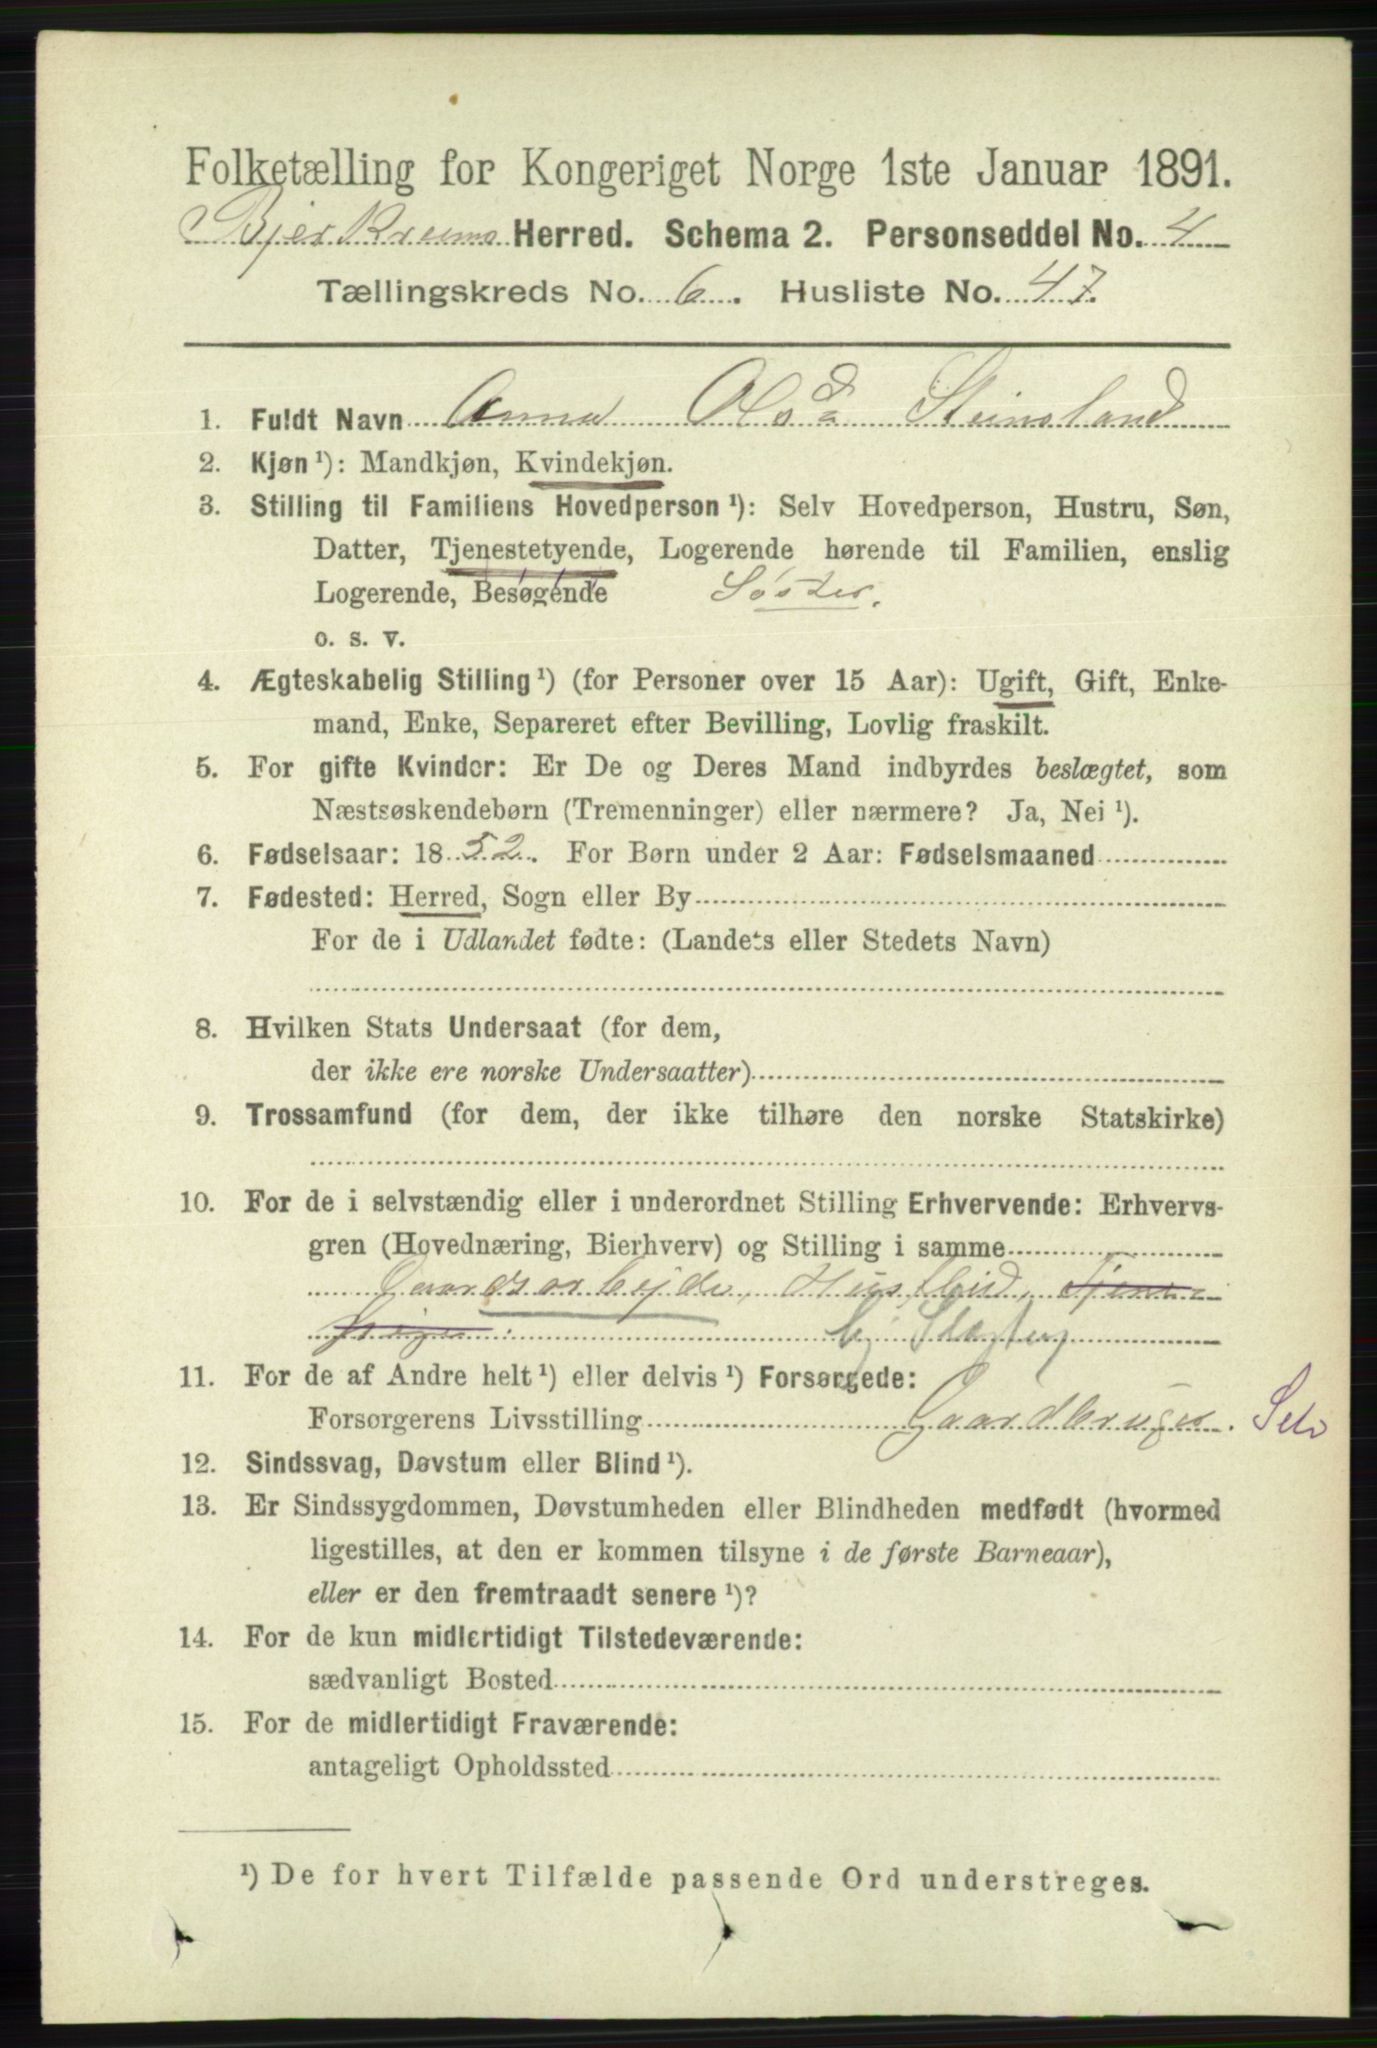 Folketælling for Kongeriget Norge 1ste Januar 1891.
Bjerkreims Herred. Schema 2. Personseddel No. 4
Tællingskreds No. 6. Husliste No. 47.
1. Fuldt Navn Anna Olsda Steinsland
2. Kjøn ¹): Mandkjøn, Kvindekjøn.
3. Stilling til Familiens Hovedperson ¹): Selv Hovedperson, Hustru, Søn,
Datter, Tjenestetyende, Logerende hørende til Familien, enslig
Logerende, Besøgende Søster.
o. s. v.
4. Ægteskabelig Stilling ¹) (for Personer over 15 Aar): Ugift, Gift, Enke-
mand, Enke, Separeret efter Bevilling, Lovlig fraskilt.
5. For gifte Kvinder: Er De og Deres Mand indbyrdes beslægtet, som
Næstsøskendebørn (Tremenninger) eller nærmere? Ja, Nei ¹).
6. Fødselsaar: 1852. For Børn under 2 Aar: Fødselsmaaned
7. Fødested: Herred, Sogn eller By
For de i Udlandet fødte: (Landets eller Stedets Navn)
8. Hvilken Stats Undersaat (for dem,
der ikke ere norske Undersaatter)
9. Trossamfund (for dem, der ikke tilhøre den norske Statskirke)
10. For de i selvstændig eller i underordnet Stilling Erhvervende: Erhvervs-
gren (Hovednæring, Bierhverv) og Stilling i samme
Gaardsarbejde, Husflid, Tjene-
Pige
11. For de af Andre helt ¹) eller delvis ¹) Forsørgede:
Forsørgerens Livsstilling Gaardbruger. Selv
12. Sindssvag, Døvstum eller Blind ¹).
13. Er Sindssygdommen, Døvstumheden eller Blindheden medfødt (hvormed
ligestilles, at den er kommen tilsyne i de første Barneaar),
eller er den fremtraadt senere ¹)?
14. For de kun midlertidigt Tilstedeværende:
sædvanligt Bosted
15. For de midlertidigt Fraværende:
antageligt Opholdssted
¹) De for hvert Tilfælde passende Ord understreges.